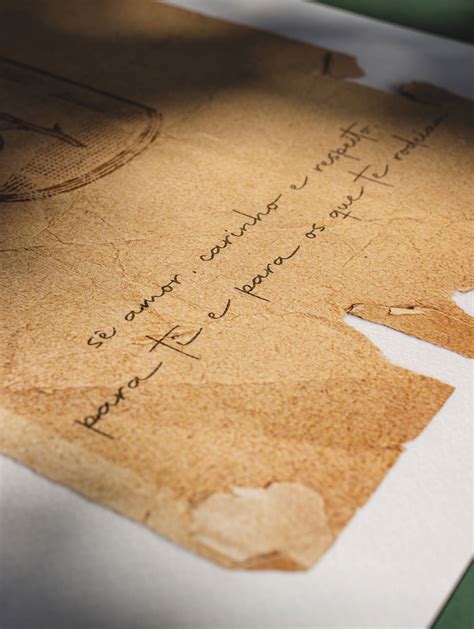 sê amor, carinho e respeito,
para ti e para os que te rodeiam